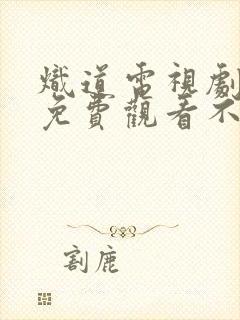 熾道電視劇
免費觀看不
割鹿